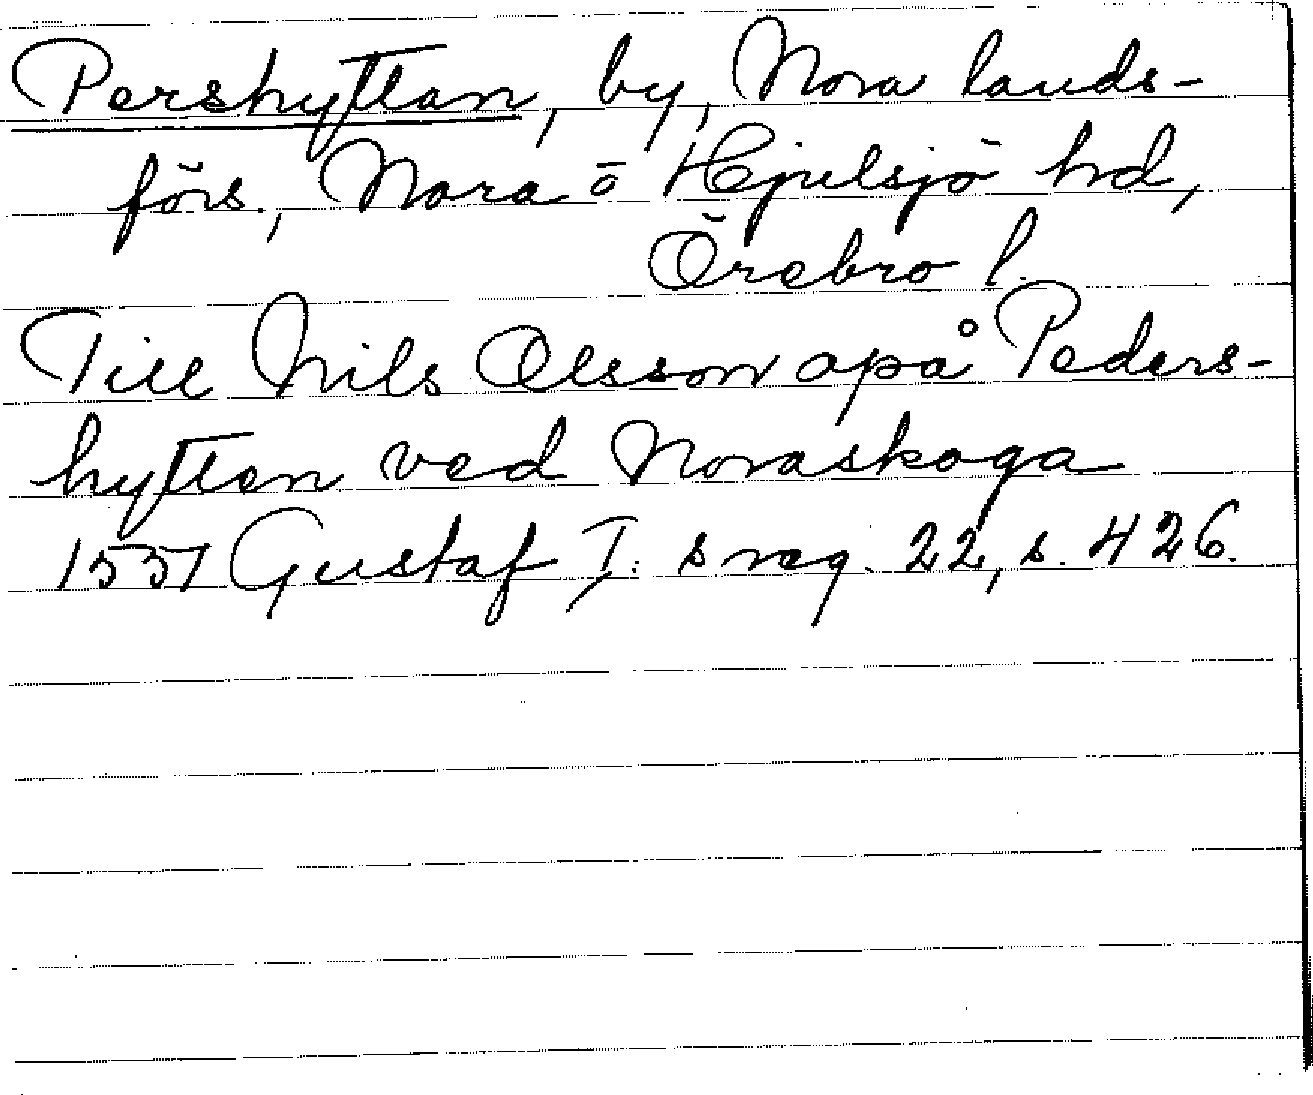 Pershyttan, by, Nora lands-
förs., Nora o Hjulsjö hd,
Örebro l.
Till Nils Olsson apå Peders-
hytten ved Noraskoga
1551 Gustaf I:s reg. 22, s. 426.